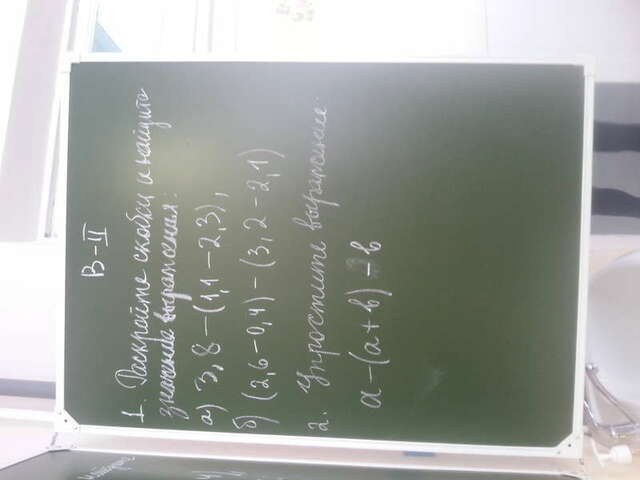 В-II
1. Раскройте скобки и найдите
значение выражения:
а) 3,8-(1,1-2,3),
б) (2,6-0,4)-(3,2-2,1)
2. Упростите выражение
а-(а+в)-в